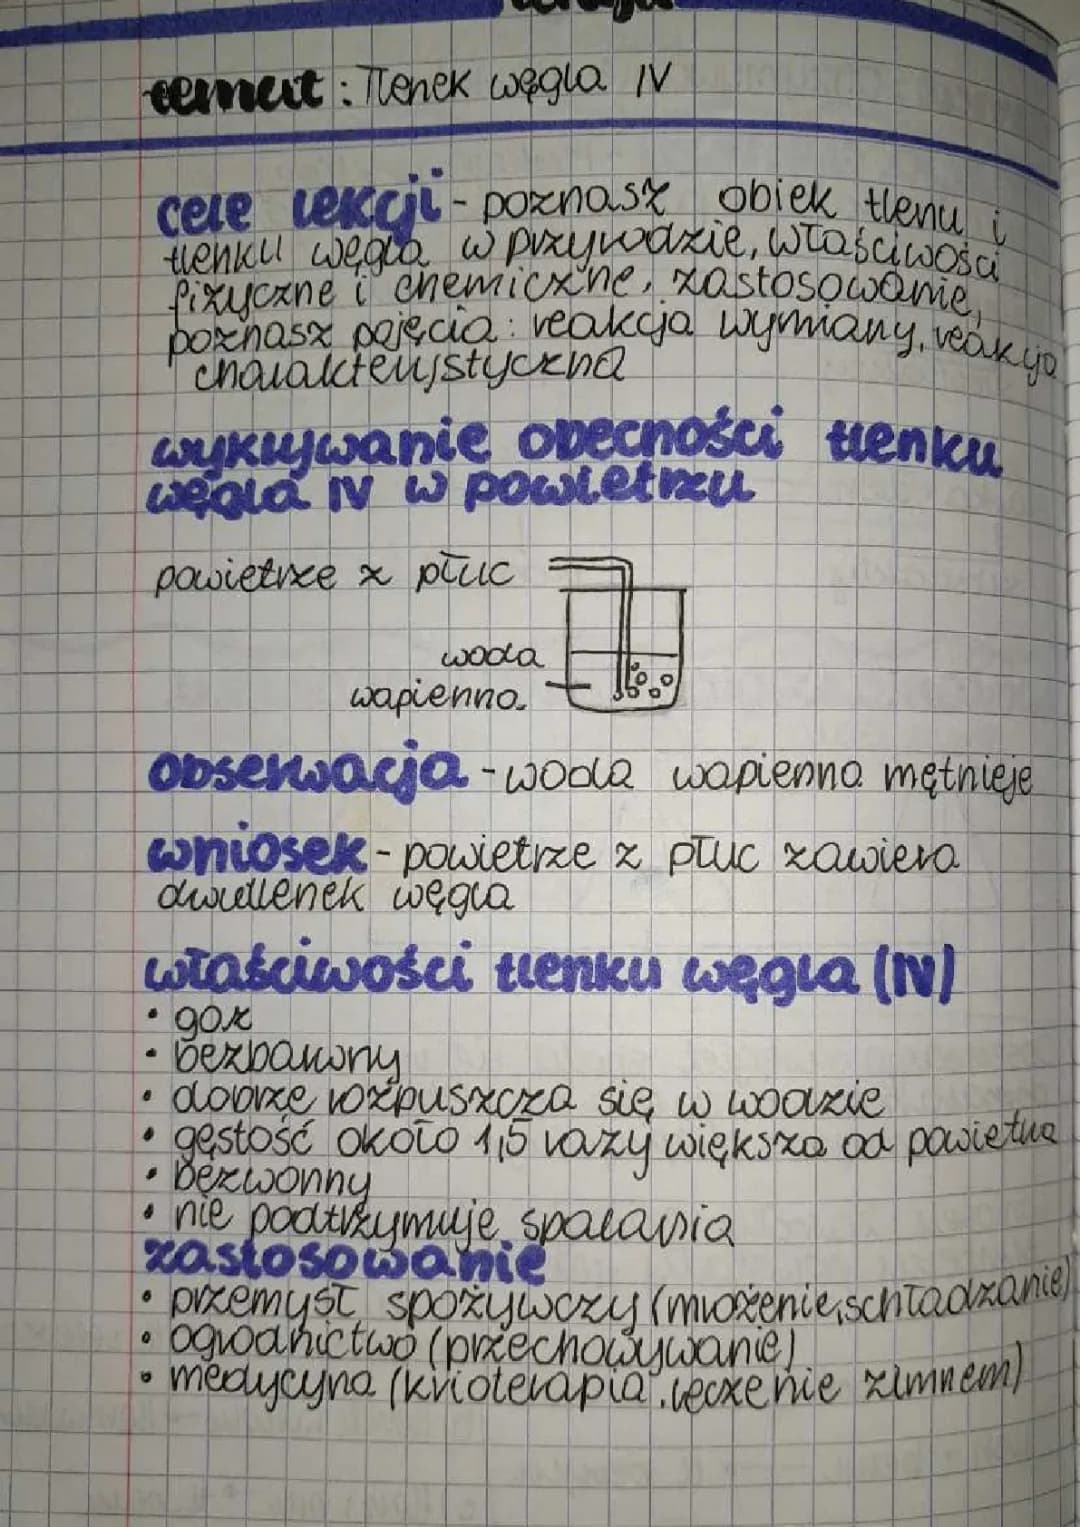 temat: Tlenek węgla IV
cele lekcji - poznasz obiek tlenu i
tlenku węgla w przyrodzie, właściwości
fizyczne i chemiczne, zastosowanie,
poznasz pojęcia: reakcja wymiany, reakcja
charakterystyczna
wykrywanie obecności tlenku
węgla IV w powietrzu
powietrze z płuc
woda
wapienna
obserwacja - woda wapienna mętnieje
wniosek - powietrze z płuc zawiera
dwutlenek węgla
właściwości tlenku węgla (IV)
• gaz
• bezbarwny
• dobrze rozpuszcza się w wodzie
• gęstość około 1,5 razy większa od powietrza
• bezwonny
• nie podtrzymuje spalania
zastosowanie
• przemysł spożywczy (mrożenie, schładzanie)
• ogrodnictwo (przechowywanie)
• medycyna (krioterapia, leczenie zimnem)